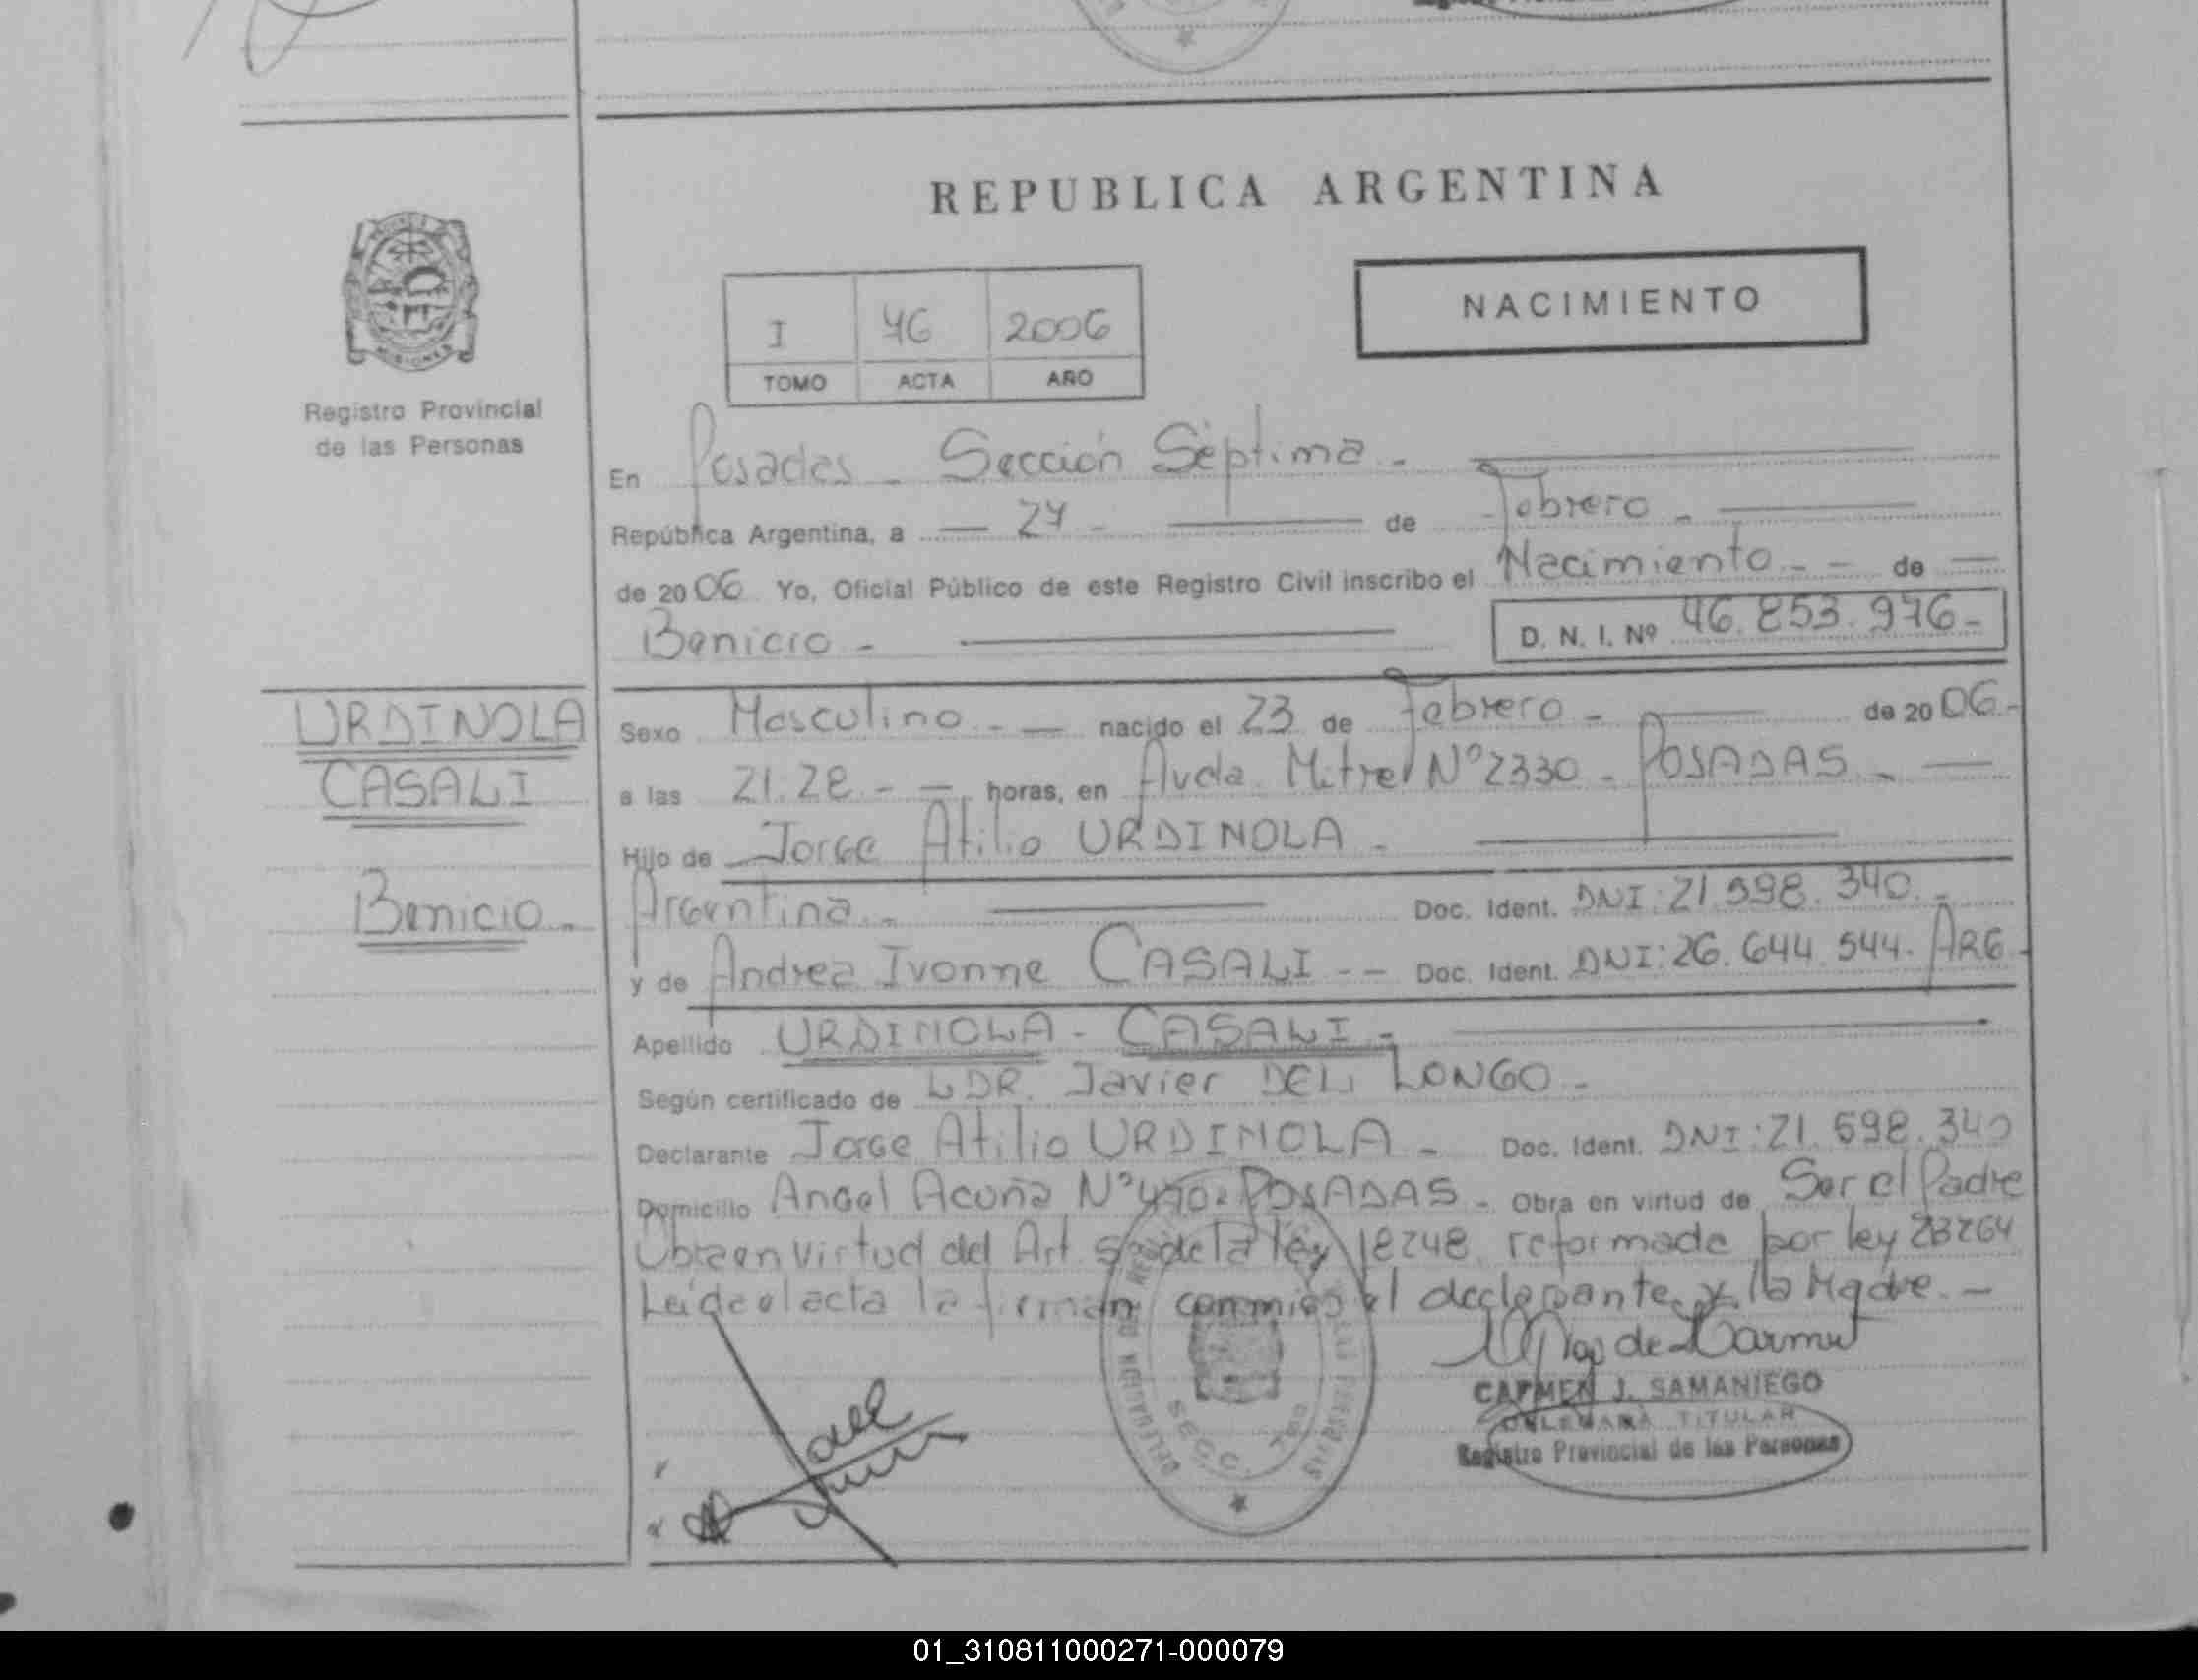 REPUBLICA ARGENTINA
NACIMIENTO
I 46 2006
TOMO ACTA AÑO
MISIONES
Registro Provincial
de las Personas
En Posadas - Sección Séptima -
República Argentina, a - 24 - de Febrero -
de 2006 Yo, Oficial Público de este Registro Civil inscribo el Nacimiento - - de
Benicio -
D. N. I. Nº 46.853.976-
URDINOLA
CASALI
Benicio -
Sexo Masculino - - nacido el 23 de Febrero - de 2006.-
a las 21:28 - - horas, en Avda. Mitre Nº 2330 - POSADAS -
Hijo de Jorge Atilio URDINOLA -
Argentina - Doc. Ident. DNI: 21.598.340.-
y de Andrea Ivonne CASALI - - Doc. Ident. DNI: 26.644.544. ARG
Apellido URDINOLA - CASALI -
Según certificado de DR. Javier DEL LONGO -
Declarante Jorge Atilio URDINOLA - Doc. Ident. DNI: 21.598.340
Domicilio Angel Acuña Nº POSADAS - Obra en virtud de Ser el Padre
Obra en virtud del Art. de la ley 18248 reformada por ley 23264
Leída el acta la firman conmigo el declarante y la Madre. -
CARMEN J. SAMANIEGO
DELEGADA TITULAR
Registro Provincial de las Personas
SECC. 7ma
01_310811000271-000079